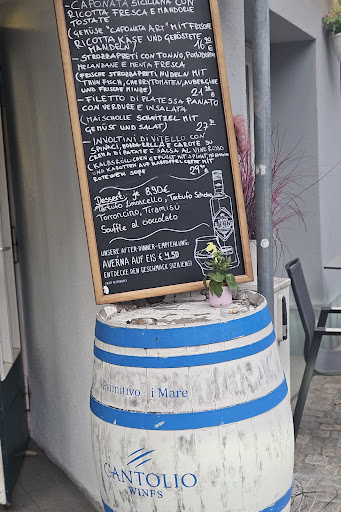 -CAPONATA SICILIANA CON
RICOTTA FRESCA E MANDORLE
TOSTATE
(GEMÜSE "CAPONATA ART" MIT FRISCHE
RICOTTA KÄSE UND GERÖSTETE
MANDELN)
- STROZZAPRETI CON TONNO, POMODORINI
MELANZANE E MENTA FRESCA
(FRISCHE STROZZAPRETI NUDELN MIT
THUNFISCH, CHERRYTOMATEN, AUBERGINE
UND FRISCHE MINZE)
- FILETTO DI PLATESSA PANATO
CON VERDURE E INSALATA
(MAISCHOLLE SCHNITZEL MIT
GEMÜST UND SALAT)
- INVOLTINI DI VITELLO CON
SPINACI, MORTADELLA E CAROTE SU
CREMA DI PATATE E SALSA AL VINO ROSSO
(KALBSROULADEN GEFÜLLT MIT SPINAT,
UND KAROTTEN AUF KARTOFFEL CREME MIT
ROTEWEIN SOßE
Dessert je 8,90€
Tartufo Limoncello, Tartufo
Torroncino, Tiramisù
Souffle al cioccolato
UNSERE AFTER-DINNER-EMPFEHLUNG:
AVERNA AUF EIS € 4,50
ENTDECKE DEN GESCHMACK SIZILIENS!
Primitivo i Mare
CANTOLIO
WINES